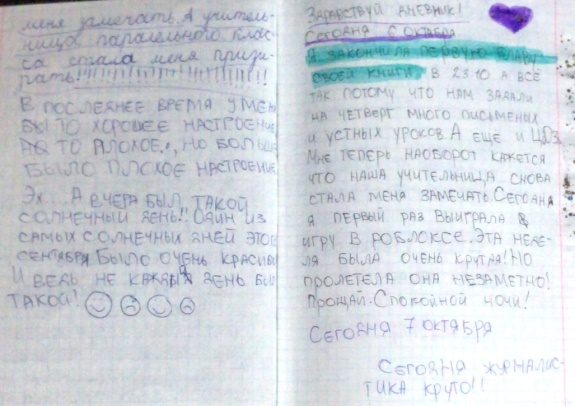 меня замечать. А учитель-
ница паралельного клас-
са стала меня прези-
рать!!!!!!!!!!!!!!!!!!!!!!
В последнее время у меня
было хорошее настроение
а то плохое, но больше
было плохое настроение
Эх... А вчера был такой
солнечный день!! Один из
самых солнечных дней этого
сентября. Было очень красиво
И ведь не каждый день был
такой!
Здравствуй дневник!
Сегодня 6 октября
Я закончила первую главу
своей книги. В 23:10 а всё
так потому что нам задали
на четверг много письменых
и устных уроков. А еще и ЦДЗ.
Мне теперь наоборот кажется
что наша учительница снова
стала меня замечать. Сегодня
я первый раз выиграла в
игру в роблоксе. Эта неде-
ля была очень крутая! Но
пролетела она незаметно!
Прощай. Спокойной ночи!
Сегодня 7 октября
Сегодня журналис-
тика круто!!